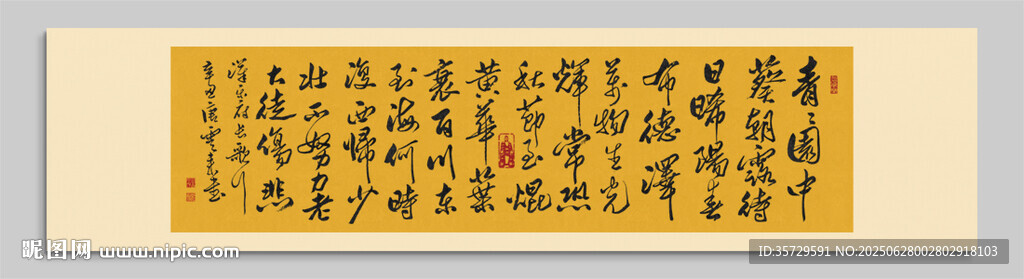 青々園中
葵朝露待
日晞陽春
布德澤
萬物生光
輝常恐
秋節至焜
黄華葉
衰百川东
到海何時
復西歸少
壮不努力老
大徒傷悲
漢乐府长歌行
辛丑唐雲
昵图网 www.nipic.com
ID:35729591 NO:20250628002802918103